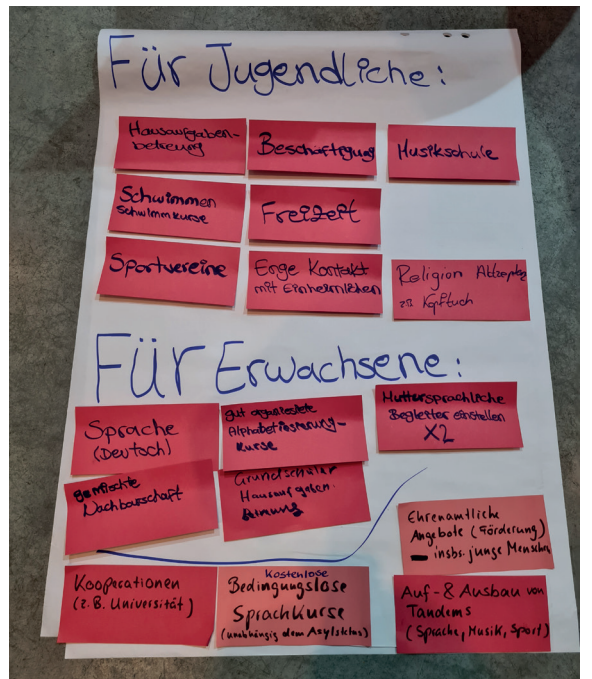 Für Jugendliche:
Hausaufgaben-
betreung
Beschäftigung
Musikschule
Schwimmen
Schwimmkurse
Freizeit
Sportvereine
Enge Kontakt
mit Einheimischen
Religion Akzeptan
zu Kopftuch
Für Erwachsene:
Sprache
(Deutsch)
gut organisiete
Alphabetisierung-
kurse
Muttersprachliche
Begleiter einstellen
X2
gemischte
Nachbarschaft
Grundschüler
Hausaufgaben.
Ehrenamtliche
Angebote (Förderung)
insbs. junge Menschen
Kooperationen
(z.B. Universität)
Kostenlose
Bedingungslose
Sprachkurse
(unabhängig dem Asylstatus)
Auf- & Ausbau von
Tandems
(Sprache, Musik, Sport)